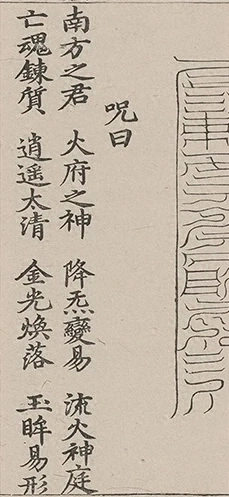 咒曰
南方之君 火府之神 降炁變易 流火神庭
亡魂鍊質 逍遥太清 金光煥落 玉眸易形